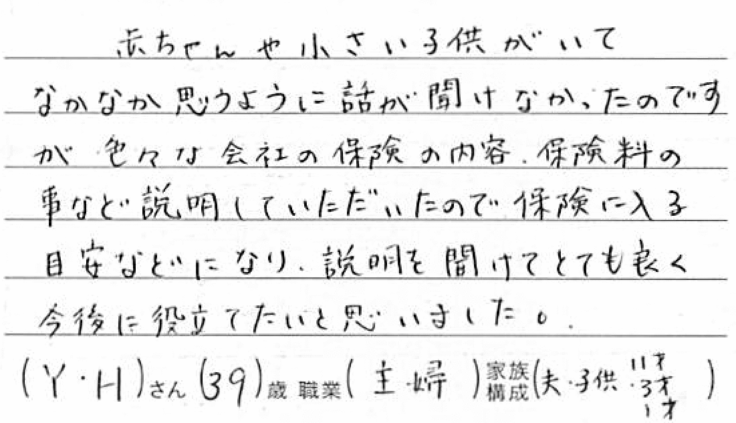 赤ちゃんや小さい子供がいて
なかなか思うように話が聞けなかったのです
が 色々な会社の保険の内容、保険料の
事など説明していただいたので保険に入る
目安などになり、説明を聞けてとても良く
今後に役立てたいと思いました。
(Y・H)さん(39)歳 職業(主婦)家族構成(夫・子供・11才・3才 1才)